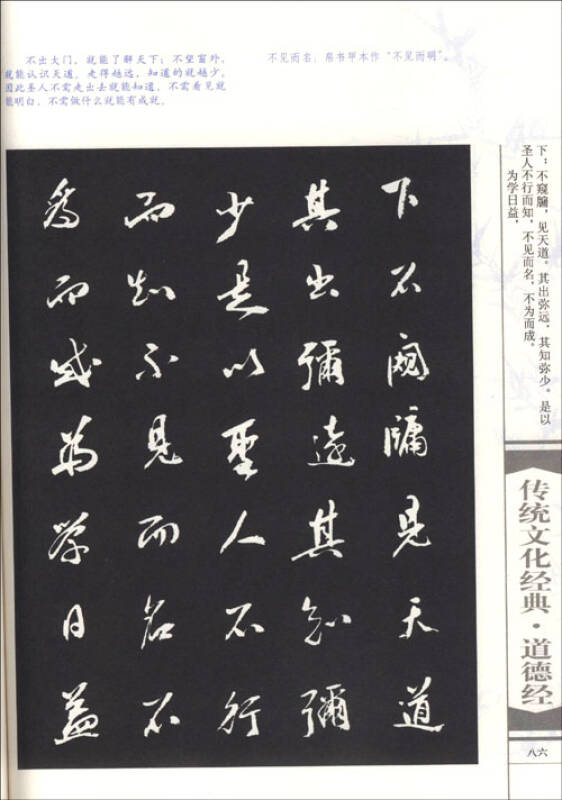 不出大门，就能了解天下；不望窗外，
就能认识天道。走得越远，知道的就越少。
因此圣人不需走出去就能知道，不需看见就
能明白，不需做什么就能有成就。
不见而名：帛书甲本作“不见而明”。
下；不窥牖，见天道。其出弥远，其知弥少。是以
圣人不行而知，不见而名，不为而成。
为学日益，
下不窺牖見天道
其出彌遠其知彌
少是以聖人不行
而知不見而名不
為而成為學日益
传统文化经典·道德经
八六